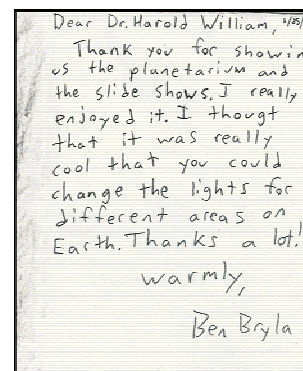 Dear Dr. Harold William,
Thank you for showin
us the planetarium and
the slide shows. I really
enjoyed it. I thougt
that it was really
cool that you could
change the lights for
different areas on
Earth. Thanks a lot!
warmly,
Ben Bryla